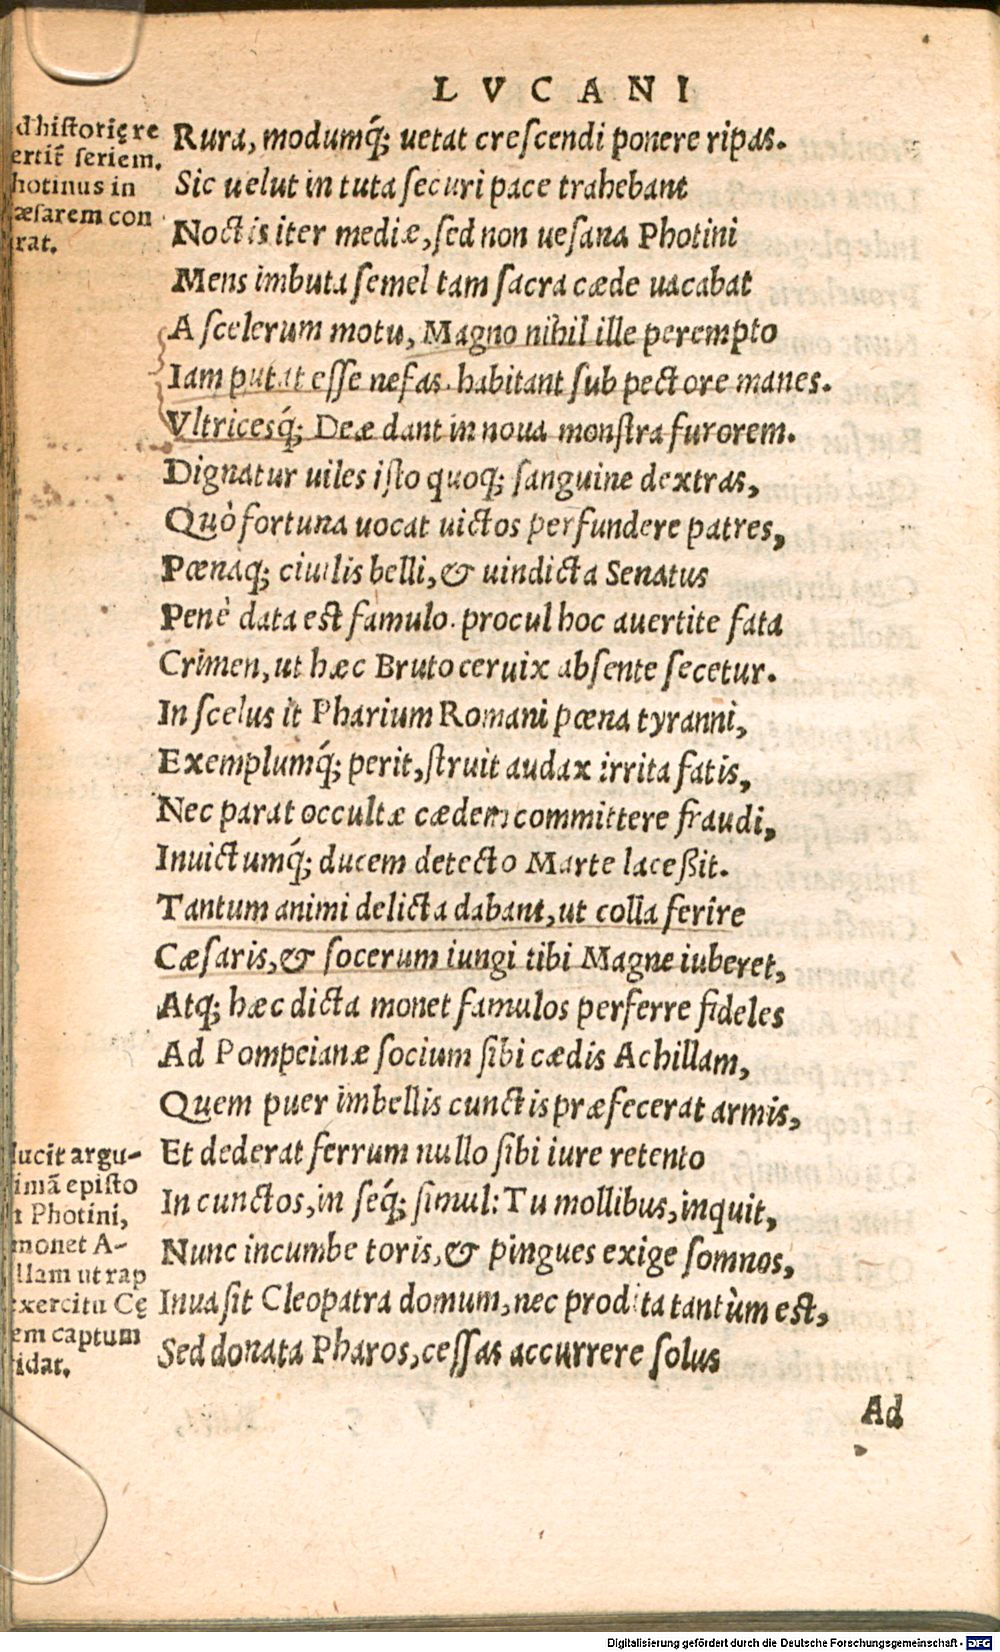 LVCANI
d historię re
ertit̄ seriem.
hotinus in
æsarem con
rat.
Rura, modumq́; uetat crescendi ponere ripas.
Sic uelut in tuta securi pace trahebant
Noctis iter mediæ, sed non uesana Photini
Mens imbuta semel tam sacra cæde uacabat
A scelerum motu, Magno nihil ille perempto
Iam putat esse nefas. habitant sub pectore manes.
Vltricesq́; Deæ dant in noua monstra furorem.
Dignatur uiles isto quoq; sanguine dextras,
Quò fortuna uocat uictos perfundere patres,
Pœnaq; ciuilis belli, & uindicta Senatus
Penè data est famulo. procul hoc auertite fata
Crimen, ut hæc Bruto ceruix absente secetur.
In scelus it Pharium Romani pœna tyranni,
Exemplumq́; perit, struit audax irrita fatis,
Nec parat occultæ cædem committere fraudi,
Inuictumq́; ducem detecto Marte laceßit.
Tantum animi delicta dabant, ut colla ferire
Cæsaris, & socerum iungi tibi Magne iuberet,
Atq; hæc dicta monet famulos perferre fideles
Ad Pompeianæ socium sibi cædis Achillam,
Quem puer imbellis cunctis præfecerat armis,
Et dederat ferrum nullo sibi iure retento
In cunctos, in seq́; simul: Tu mollibus, inquit,
Nunc incumbe toris, & pingues exige somnos,
Inuasit Cleopatra domum, nec prodita tantùm est,
Sed donata Pharos, cessas accurrere solus
lucit argu-
imā episto
Photini,
monet A-
llam ut rap
exercitu Cę
em captum
idat.
Ad
Digitalisierung gefördert durch die Deutsche Forschungsgemeinschaft - DFG